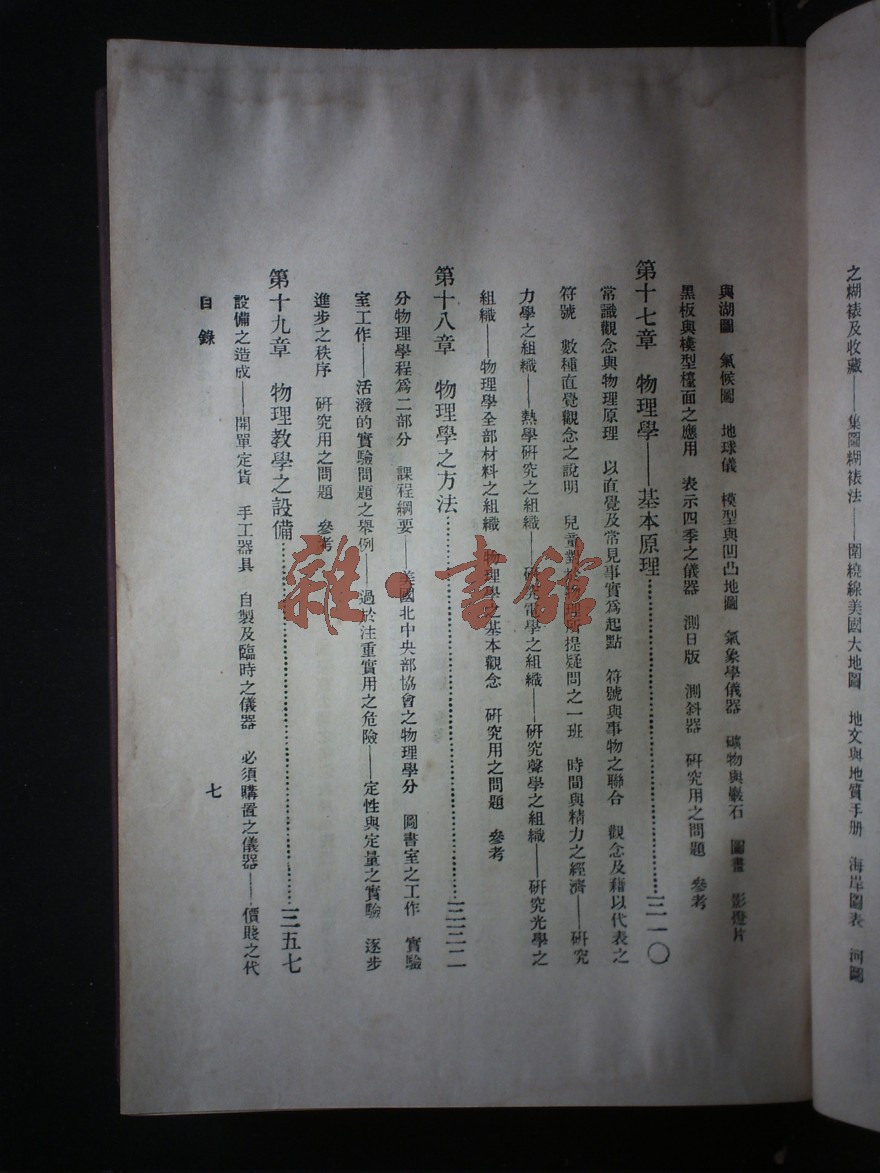 之糊裱及收藏——集圖糊裱法——圍繞線美國大地圖　地文與地質手册　海岸圖表　河圖
與湖圖　氣候圖　地球儀　模型與凹凸地圖　氣象學儀器　礦物與巖石　圖畫　影燈片
黑板與模型檯面之應用　表示四季之儀器　測日版　測斜器　研究用之問題　參考
第十七章　物理學——基本原理…………三一〇
常識觀念與物理原理　以直覺及常見事實爲起點　符號與事物之聯合　觀念及藉以代表之
符號　數種直覺觀念之說明　兒童對於物理所提疑問之一班　時間與精力之經濟——研究
力學之組織——熱學研究之組織——研究電學之組織——研究聲學之組織——研究光學之
組織——物理學全部材料之組織　物理學之基本觀念　研究用之問題　參考
第十八章　物理學之方法…………三三二
分物理學程爲二部分　課程綱要——美國北中央部協會之物理學分　圖書室之工作　實驗
室工作——活潑的實驗問題之舉例——過於注重實用之危險——定性與定量之實驗　逐步
進步之秩序　研究用之問題　參考
第十九章　物理教學之設備…………三五七
設備之造成——開單定貨　手工器具　自製及臨時之儀器　必須購置之儀器——價賤之代
目錄
七
雜·書館